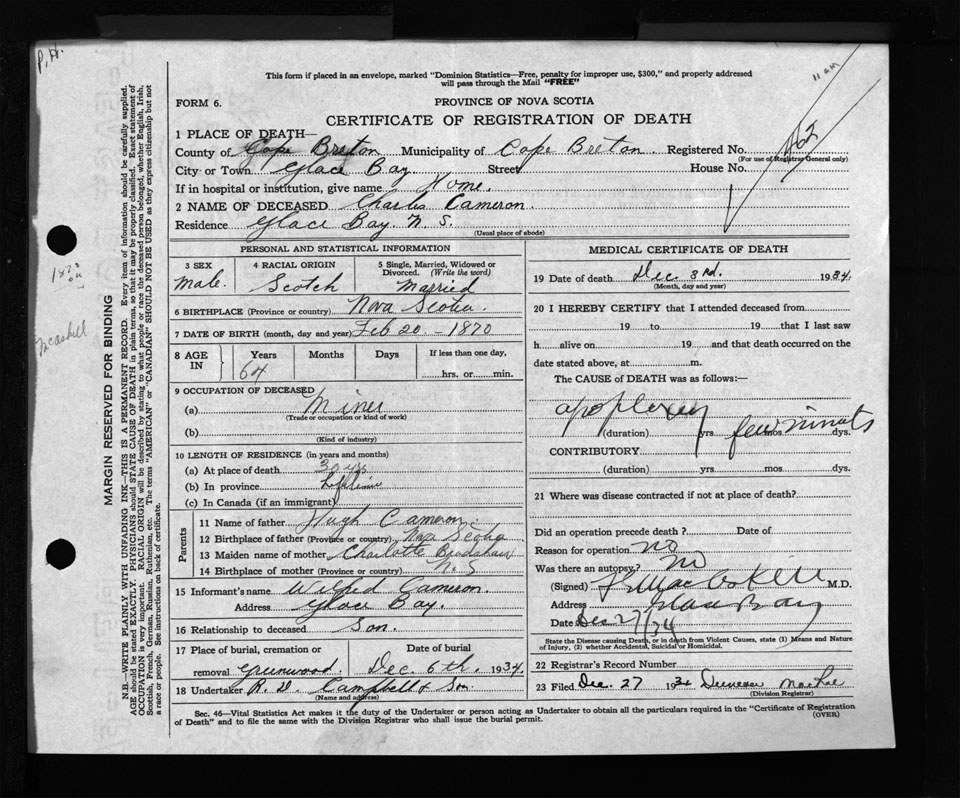 P.H.
11 AM
This form if placed in an envelope, marked "Dominion Statistics—Free, penalty for improper use, $300," and properly addressed
will pass through the Mail "FREE"
FORM 6.
PROVINCE OF NOVA SCOTIA
CERTIFICATE OF REGISTRATION OF DEATH
1 PLACE OF DEATH—
County of Cape Breton Municipality of Cape Breton. Registered No.
(For use of Registrar General only)
City or Town Glace Bay Street House No.
If in hospital or institution, give name Home.
2 NAME OF DECEASED Charles Cameron.
Residence Glace Bay. N. S.
(Usual place of abode)
PERSONAL AND STATISTICAL INFORMATION
3 SEX 4 RACIAL ORIGIN 5 Single, Married, Widowed or
Divorced. (Write the word)
Male. Scotch Married
6 BIRTHPLACE (Province or country) Nova Scotia.
7 DATE OF BIRTH (month, day and year) Feb 20 - 1870
8 AGE IN Years Months Days If less than one day,
64 hrs. or min.
9 OCCUPATION OF DECEASED
(a) Miner
(Trade or occupation or kind of work)
(b)
(Kind of industry)
10 LENGTH OF RESIDENCE (in years and months)
(a) At place of death 30 yrs
(b) In province Lifetime
(c) In Canada (if an immigrant)
Parents
11 Name of father Hugh Cameron.
12 Birthplace of father (Province or country) Nova Scotia
13 Maiden name of mother Charlotte Bradshaw
14 Birthplace of mother (Province or country) N. S
15 Informant's name Wilfred Cameron.
Address Glace Bay.
16 Relationship to deceased Son.
17 Place of burial, cremation or Date of burial
removal Greenwood. Dec 6th. 1934.
18 Undertaker R. D. Campbell & Son.
(Name and address)
MEDICAL CERTIFICATE OF DEATH
19 Date of death Dec 3rd. 1934.
(Month, day and year)
20 I HEREBY CERTIFY that I attended deceased from
19 to 19 that I last saw
h alive on 19 and that death occurred on the
date stated above, at m.
The CAUSE of DEATH was as follows:—
apoplexy
(duration) yrs. few minuts mos. dys.
CONTRIBUTORY
(duration) yrs. mos. dys.
21 Where was disease contracted if not at place of death?
Did an operation precede death? Date of
Reason for operation no
Was there an autopsy? no
(Signed) M.D.
Address Glace Bay
Date Dec 27/34
State the Disease causing Death, or in death from Violent Causes, state (1) Means and Nature
of Injury, (2) whether Accidental, Suicidal or Homicidal.
22 Registrar's Record Number
23 Filed Dec. 27 1934 Duncan MacRae
(Division Registrar)
Sec. 46—Vital Statistics Act makes it the duty of the Undertaker or person acting as Undertaker to obtain all the particulars required in the "Certificate of Registration
of Death" and to file the same with the Division Registrar who shall issue the burial permit. (OVER)
MARGIN RESERVED FOR BINDING
N.B.—WRITE PLAINLY WITH UNFADING INK—THIS IS A PERMANENT RECORD. Every item of information should be carefully supplied.
AGE should be stated EXACTLY. PHYSICIANS should STATE CAUSE OF DEATH in plain terms, so that it may be properly classified. Exact statement of
OCCUPATION is very important. RACIAL ORIGIN will be described by stating to what people or race the deceased person belonged, whether English, Irish,
Scottish, French, German, Russian, Ruthenian, etc. The terms "AMERICAN" or "CANADIAN" SHOULD NOT BE USED as they express citizenship but not
a race or people. See instructions on back of certificate.